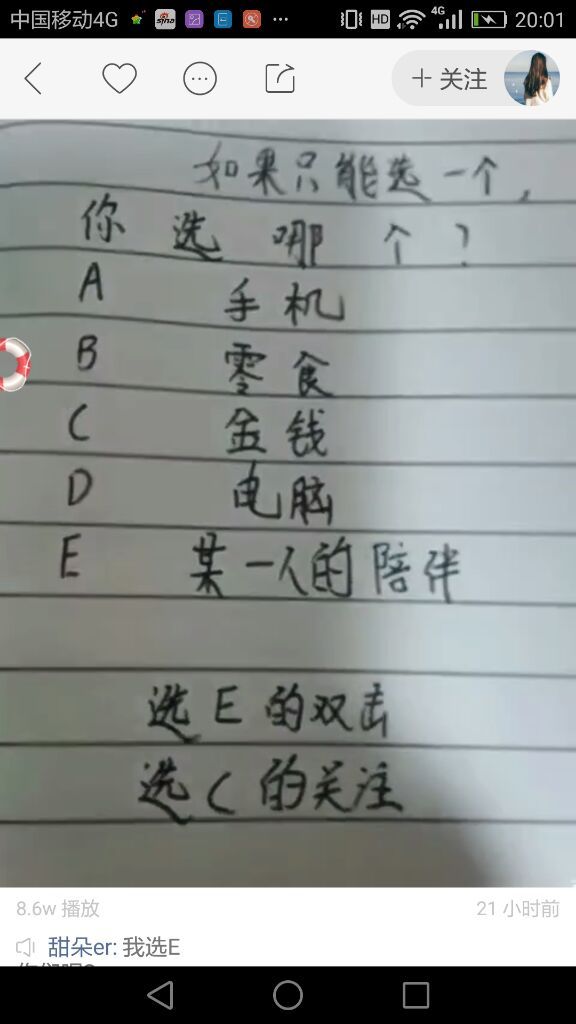 中国移动4G HD 4G 20:01
+ 关注
如果只能选一个,
你选哪个?
A 手机
B 零食
C 金钱
D 电脑
E 某一人的陪伴
选E的双击
选C的关注
8.6w 播放 21 小时前
甜朵er: 我选E